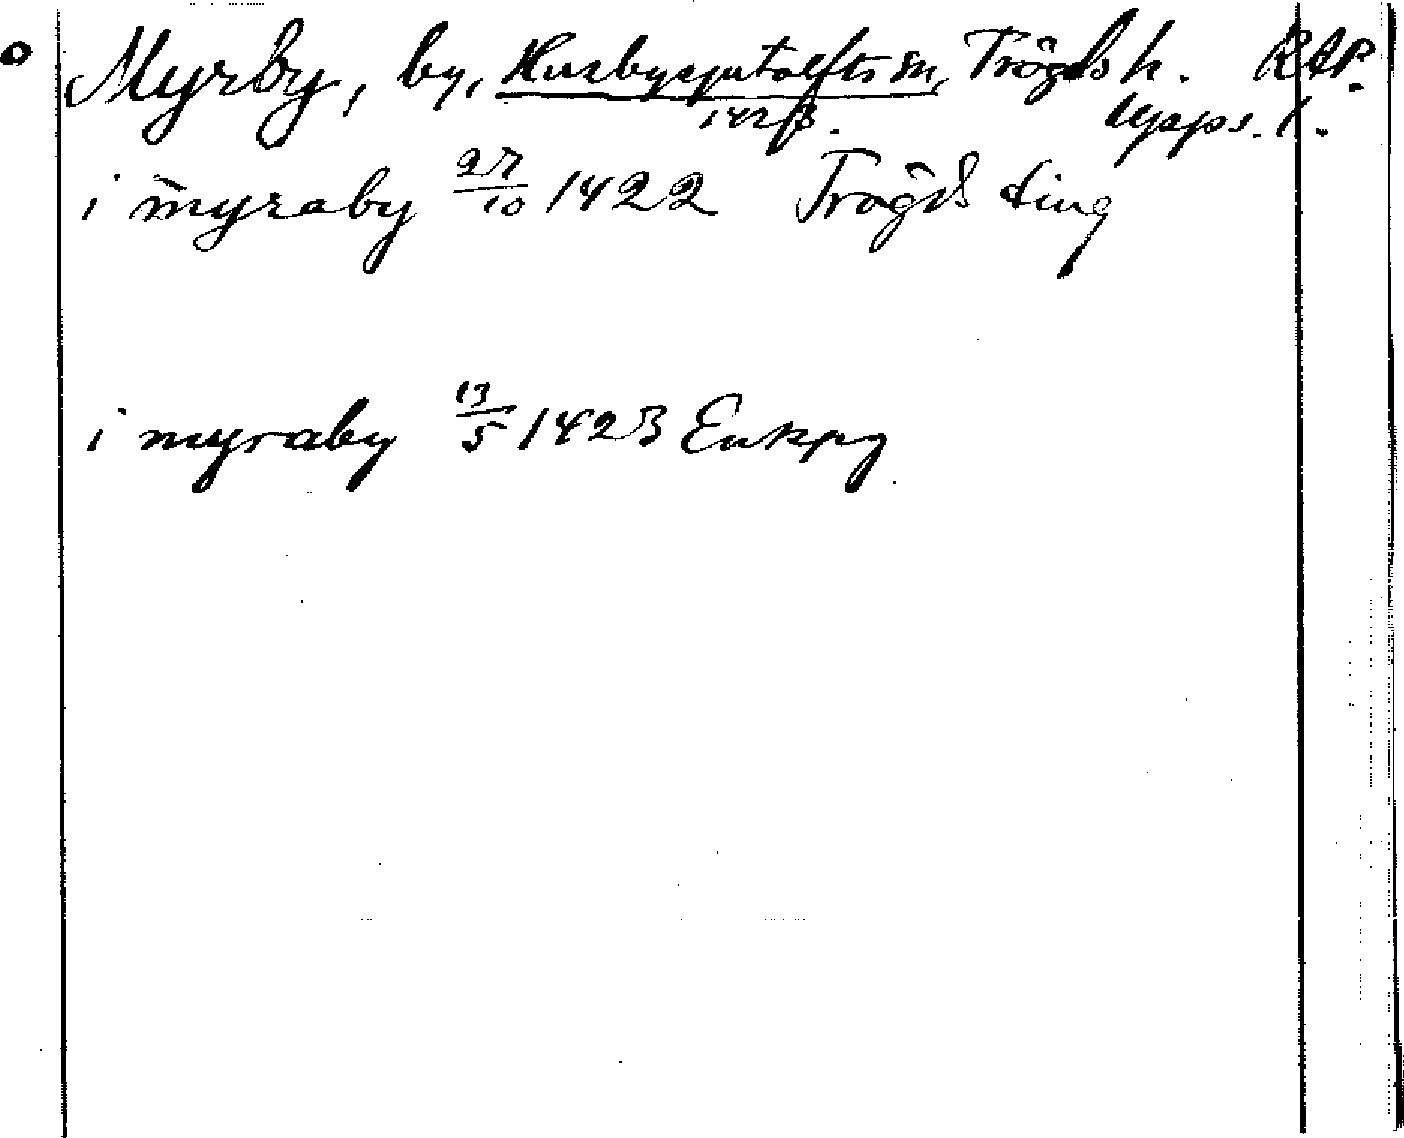 Myrby, by, Husbysjutolfts sn, Trögds h. RAP.
1423. Upps. l.
i myraby 27/10 1422 Trögds ting
i myraby 13/5 1423 Enkpg